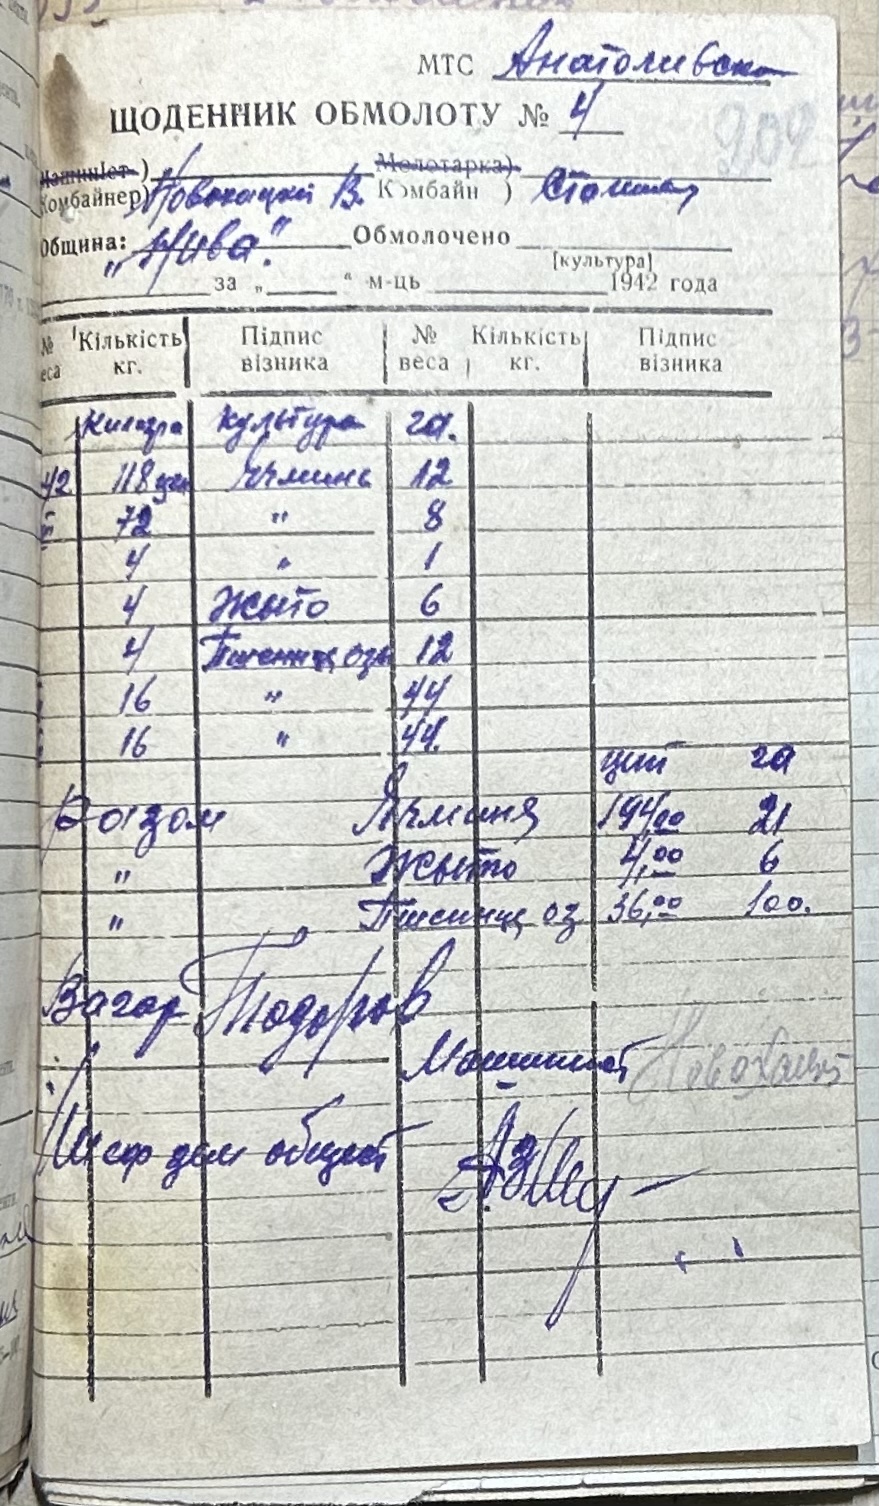 МТС Анатолиевска
ЩОДЕННИК ОБМОЛОТУ № 4
909
Машиніст ) Молотарка)
Комбайнер) В. Комбайн )
Община: „Нива." Обмолочено
[культура]
за „ " м-ць 1942 года
№ веса Кількість кг. Підпис візника № веса Кількість кг. Підпис візника
культура га.
42 118 цен Ячминь 12
72 " 8
4 " 1
4 Жыто 6
4 Пшениц озы 12
16 " 44
16 " 44.
цнт га
Ячминя 194,00 21
" Жыто 4,00 6
" Пшениц оз 36,00 100.
Вагар Тодоров
Машинист
Шеф дом общест